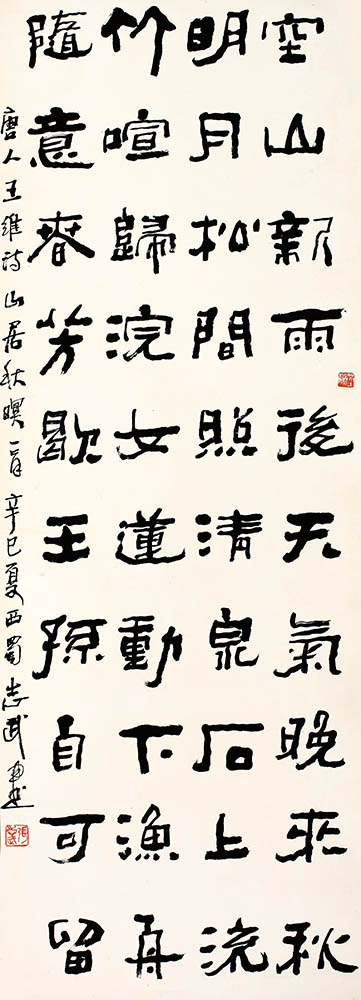 空山新雨後天氣晚來秋
明月松間照清泉石上流
竹喧歸浣女蓮動下漁舟
隨意春芳歇王孫自可留
唐人王維詩山居秋暝一首辛巳夏西蜀志武書